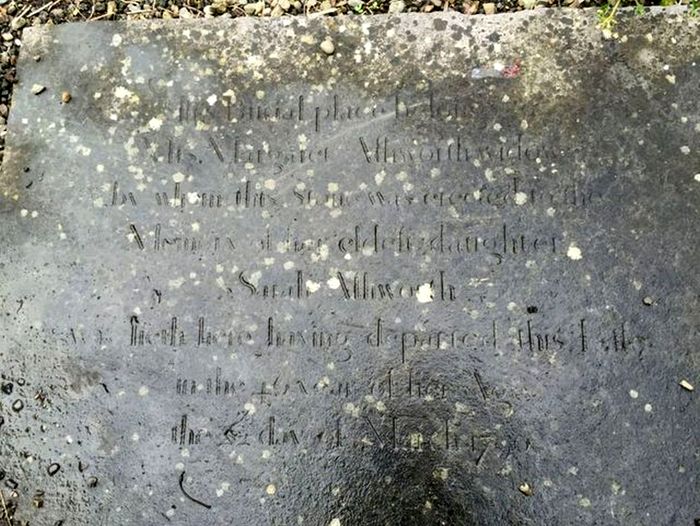 This Burial place belongs
Mrs. Margaret Allworth widow
by whom this stone was erected to the
Memory of her eldest daughter
Sarah Allworth
who lieth here having departed this Life
in the 16 year of her Age
the day of March